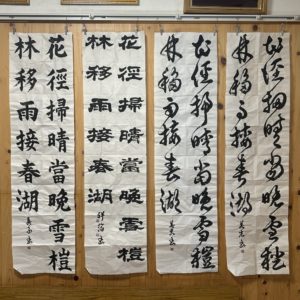 花徑掃晴當晚雪榿
林移雨接春湖
花徑掃晴當晚雪榿
林移雨接春湖
花徑掃晴當晚雪榿
林移雨接春湖
花徑掃晴當晚雪榿
林移雨接春湖